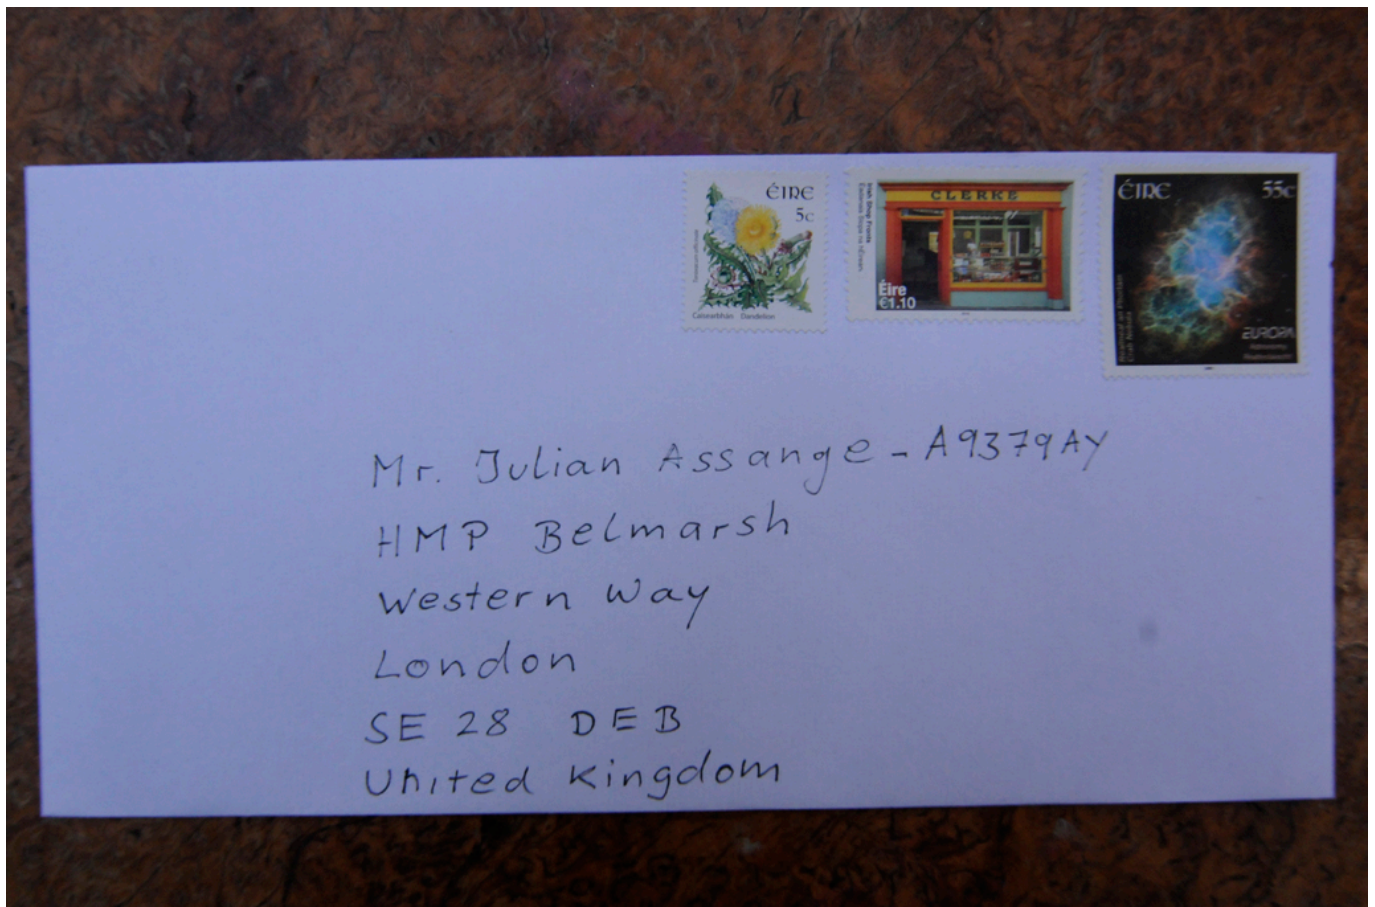 ÉIRE
5c
Caisearbhán Dandelion
Irish Shop Fronts
CLERKE
Éire
€1.10
ÉIRE 55c
EUROPA
Mr. Julian Assange - A9379AY
HMP Belmarsh
Western Way
London
SE 28 DEB
United Kingdom